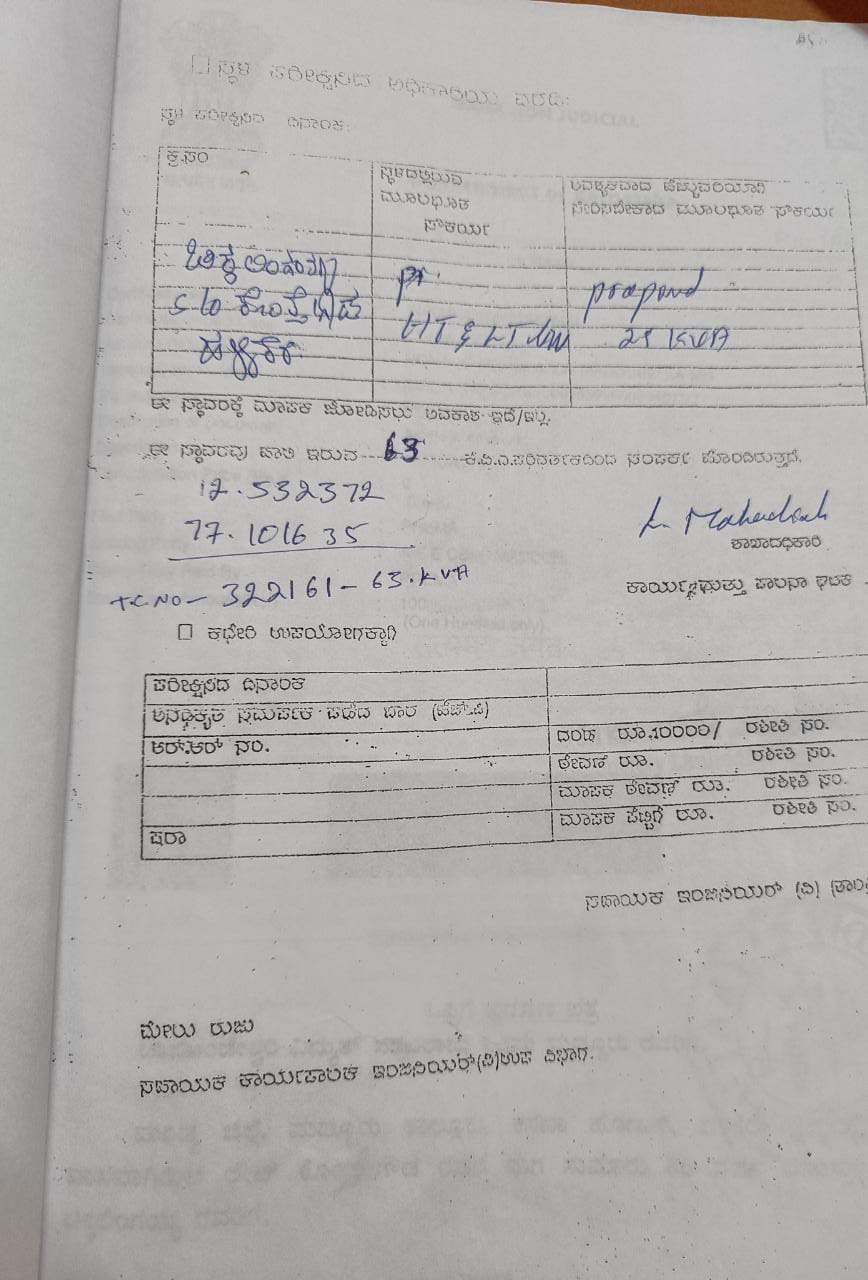 ಸ್ಥಳ ಪರೀಕ್ಷಿಸಿದ ಅಧಿಕಾರಿಯ ವರದಿ:
ಸ್ಥಳ ಪರೀಕ್ಷಿಸಿದ ದಿನಾಂಕ:
ಕ್ರ.ಸಂ
ಸ್ಥಳದಲ್ಲಿರುವ ಮೂಲಭೂತ ಸೌಕರ್ಯ
ಅವಶ್ಯಕವಾದ ಹೆಚ್ಚುವರಿಯಾಗಿ
ಸೇರಿಸಬೇಕಾದ ಮೂಲಭೂತ ಸೌಕರ್ಯ
S/o
HT & LT
25 KVA
ಈ ಸ್ಥಾವರಕ್ಕೆ ಮಾಪಕ ಜೋಡಿಸಲು ಅವಕಾಶ ಇದೆ/ಇಲ್ಲ.
ಈ ಸ್ಥಾವರವು ಹಾಲಿ ಇರುವ 63 ಕೆ.ವಿ.ಎ.ಪರಿವರ್ತಕದಿಂದ ಸಂಪರ್ಕ ಹೊಂದಿರುತ್ತದೆ.
12.532372
77.101635
T.C.NO- 322161-63.KVA
ಶಾಖಾಧಿಕಾರಿ
ಕಾರ್ಯ ಮತ್ತು ಪಾಲನಾ ಘಟಕ
ಕಛೇರಿ ಉಪಯೋಗಕ್ಕಾಗಿ
ಪರೀಕ್ಷಿಸಿದ ದಿನಾಂಕ
ಅನಧಿಕೃತ ಸಂಪರ್ಕ ಪಡೆದ ಭಾರ (ಹೆಚ್.ಪಿ)
ಆರ್.ಆರ್ ನಂ.
ದಂಡ ರೂ.10000/ ರಶೀತಿ ಸಂ.
ಠೇವಣಿ ರೂ. ರಶೀತಿ ಸಂ.
ಮಾಪಕ ಠೇವಣಿ ರೂ. ರಶೀತಿ ಸಂ.
ಮಾಪಕ ಪೆಟ್ಟಿಗೆ ರೂ. ರಶೀತಿ ಸಂ.
ಷರಾ
ಸಹಾಯಕ ಇಂಜಿನಿಯರ್ (ವಿ)
ಮೇಲು ರುಜು
ಸಹಾಯಕ ಕಾರ್ಯಪಾಲಕ ಇಂಜಿನಿಯರ್(ವಿ)ಉಪ ವಿಭಾಗ.